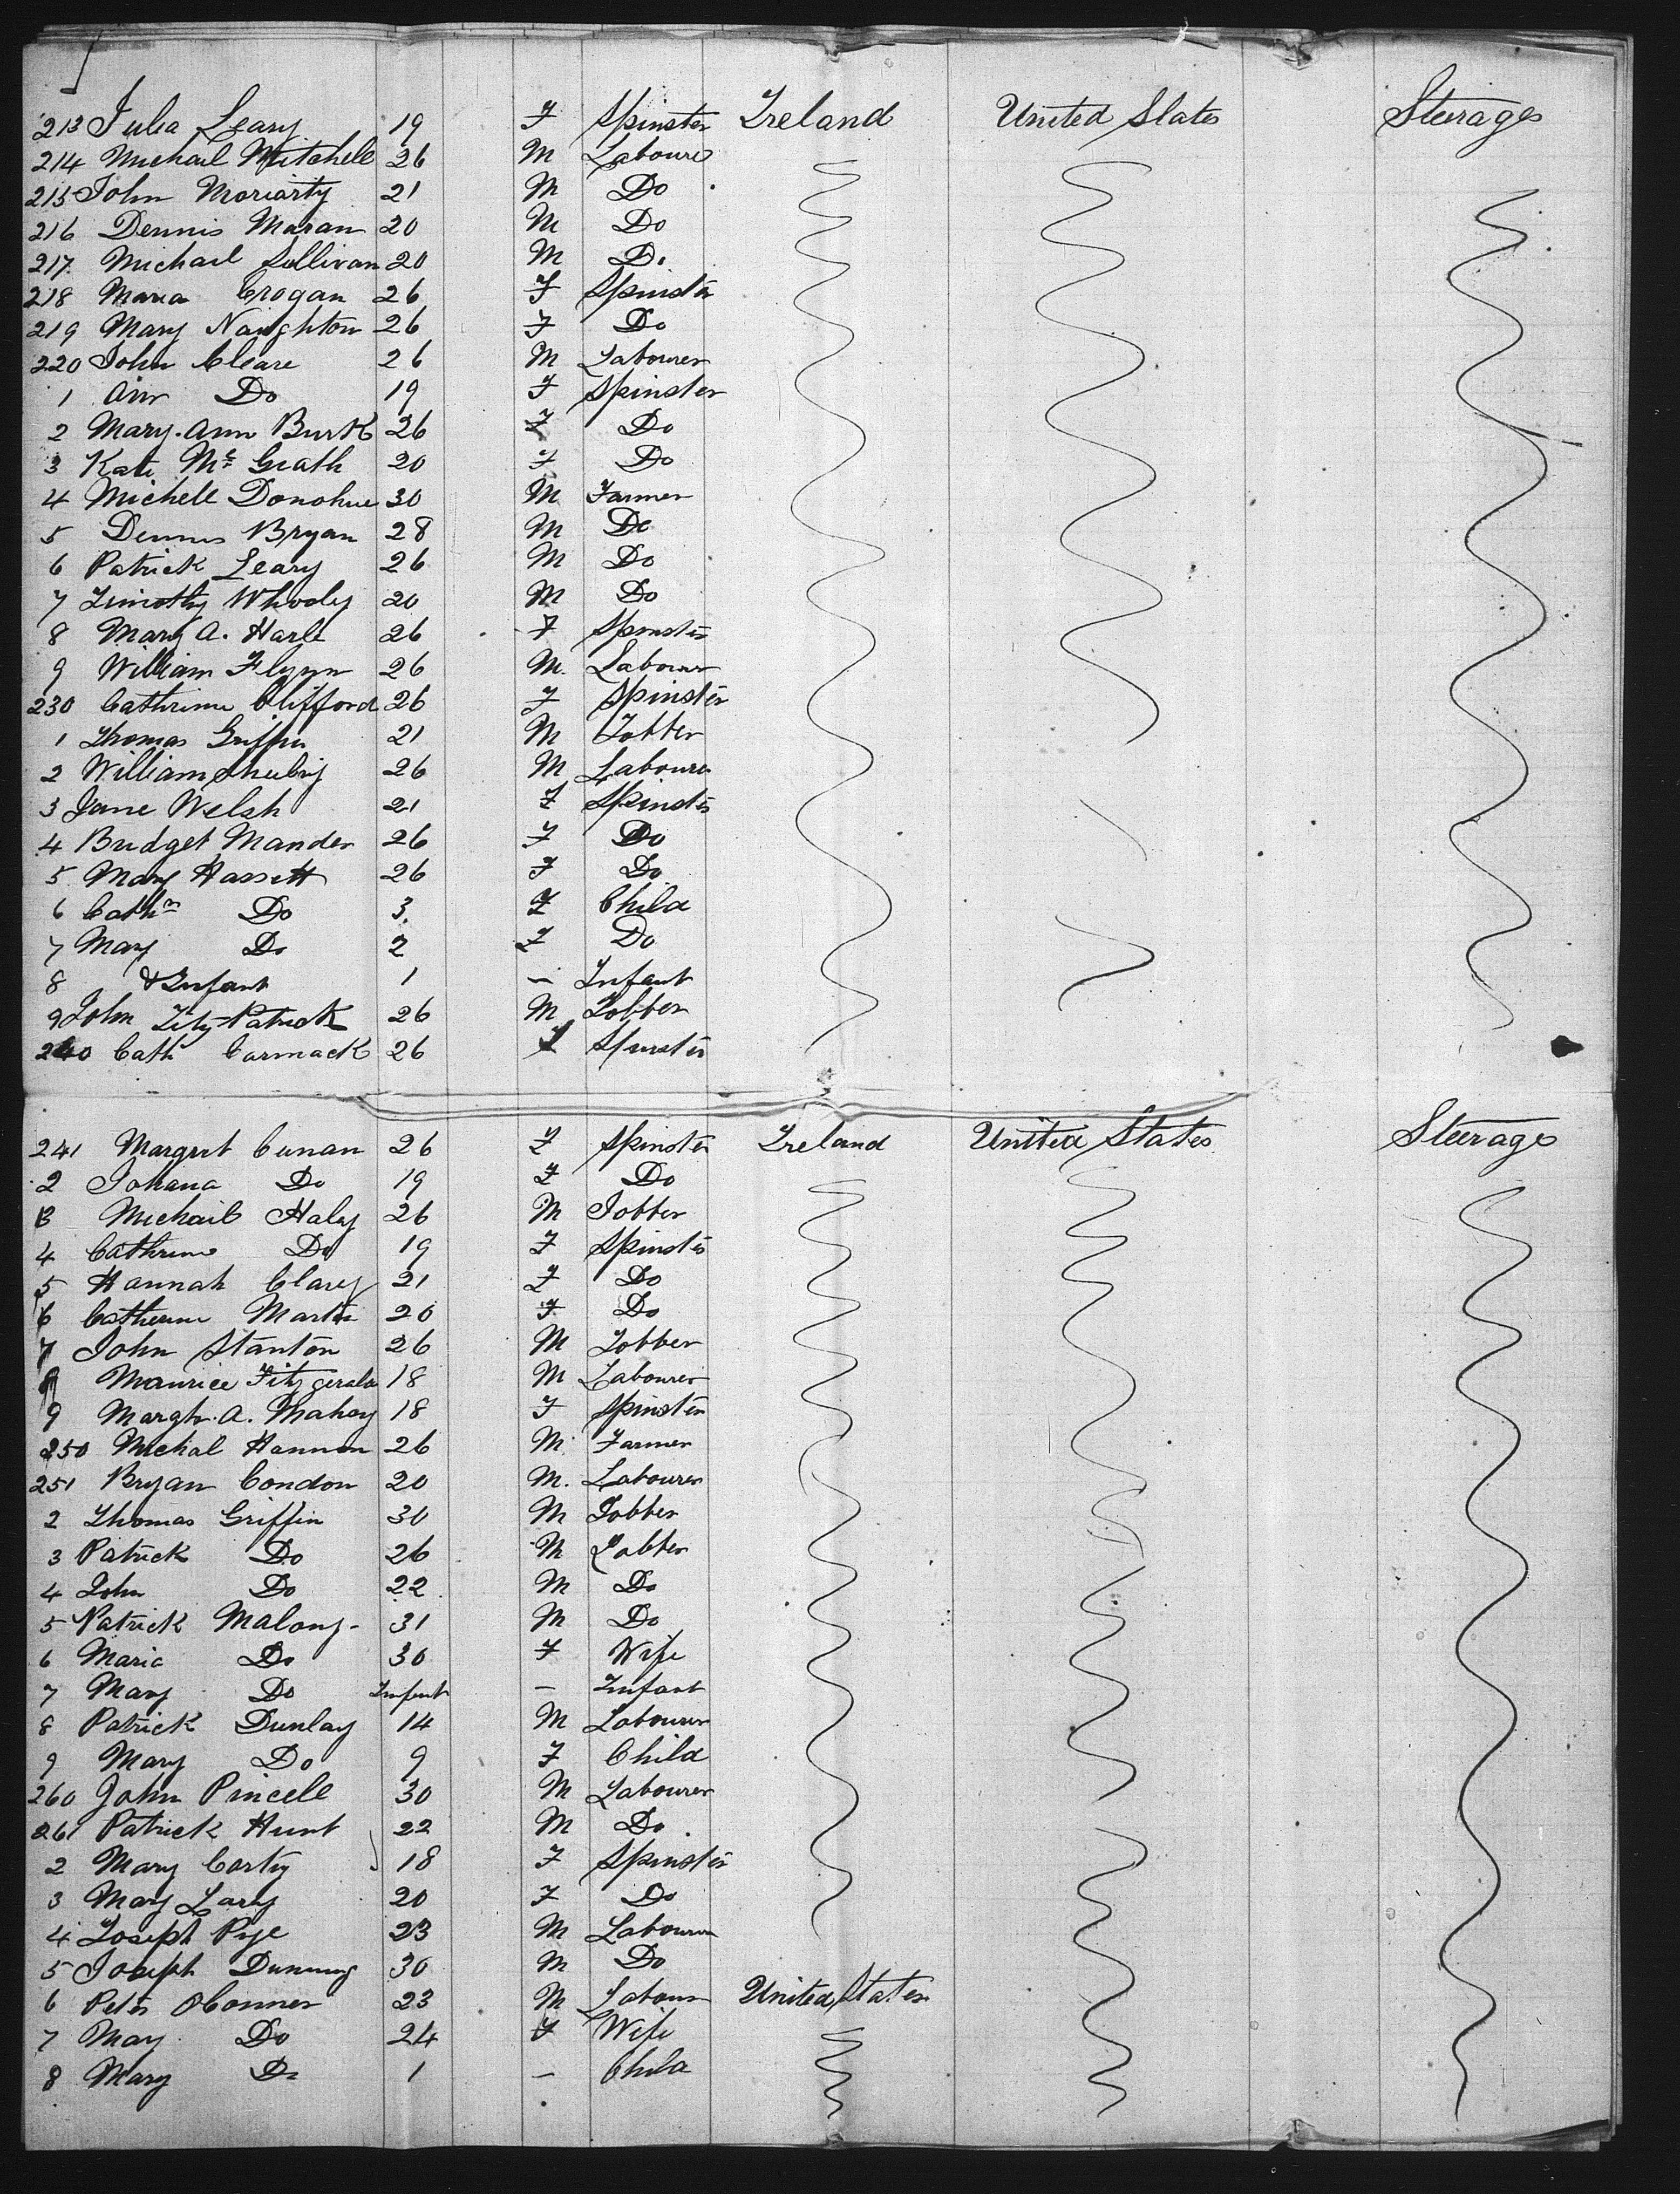 213 Julia Leary 19 F Spinster Ireland United States Steerage
214 Michail Mitchell 26 M Labourer
215 John Moriarty 21 M Do
216 Dennis Maran 20 M Do
217 Michael Sullivan 20 M Do
218 Maria Crogan 26 F Spinster
219 Mary Naughton 26 F Do
220 John Cleare 26 M Labourer
1 Ann Do 19 F Spinster
2 Mary Ann Burk 26 F Do
3 Kate Mc Grath 20 F Do
4 Michell Donohue 30 M Farmer
5 Dennis Bryan 28 M Do
6 Patrick Leary 26 M Do
7 Timothy Whooly 20 M Do
8 Mary A. Harle 26 F Spinster
9 William Flynn 26 M Labourer
230 Cathrine Clifford 26 F Spinster
1 Thomas Griffin 21 M Jobber
2 William 26 M Labourer
3 Jane Welsh 21 F Spinster
4 Bridget Mander 26 F Do
5 Mary Hassett 26 F Do
6 Cathn Do 3 F Child
7 Mary Do 2 F Do
8 & Infant 1 — Infant
9 John Fitz-Patrick 26 M Jobber
240 Cath Carmack 26 F Spinster
241 Margret Cunan 26 F Spinster Ireland United States Steerage
2 Johana Do 19 F Do
3 Michail Haly 26 M Jobber
4 Cathrine Do 19 F Spinster
5 Hannah Clarey 21 F Do
6 Catherine Martin 20 F Do
7 John Stanton 26 M Jobber
8 Maurice Fitzgerald 18 M Labourer
9 Margt. A. Mahoy 18 F Spinster
250 Michal Hannon 26 M Farmer
251 Bryan Condon 20 M. Labourer
2 Thomas Griffin 30 M Jobber
3 Patrick Do 26 M Jobber
4 John Do 22 M Do
5 Patrick Malony 31 M Do
6 Maria Do 30 F Wife
7 Mary Do Infant — Infant
8 Patrick Dunlay 14 M Labourer
9 Mary Do 9 F Child
260 John Pincell 30 M Labourer
261 Patrick Hunt 22 M Do
2 Mary Corty 18 F Spinster
3 Mary Lary 20 F Do
4 Joseph Pye 23 M Labourer
5 Joseph Dunning 30 M Do
6 Peter OConner 23 M Labour United States
7 May Do 24 F Wife
8 Mary Do 1 — Child